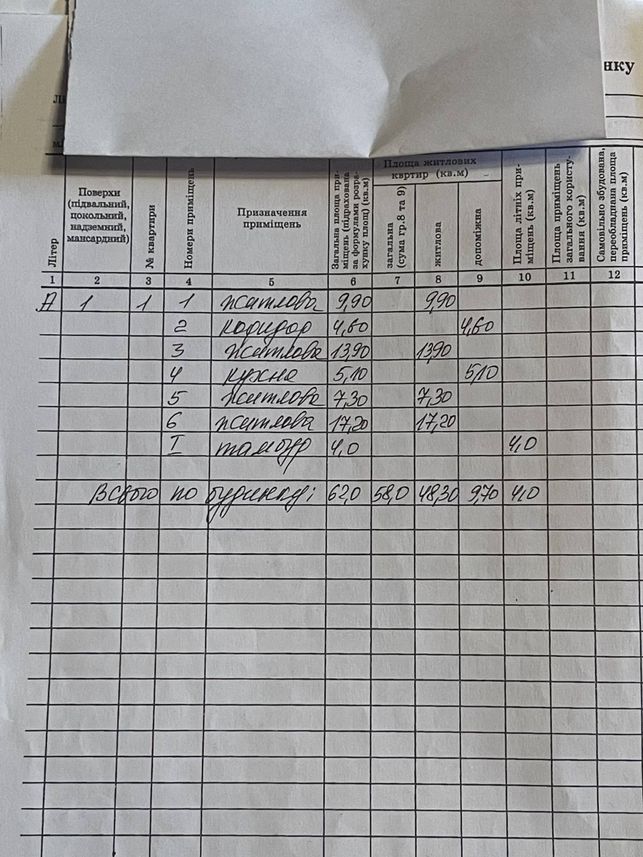 нку
Літер
Поверхи (підвальний, цокольний, надземний, мансардний)
№ квартири
Номери приміщень
Призначення приміщень
Загальна площа приміщень (підрахована за формулами розрахунку площ) (кв.м)
Площа житлових квртир (кв.м)
загальна (сума гр.8 та 9)
житлова
допоміжна
Площа літніх приміщень (кв.м)
Площа приміщень загального користування (кв.м)
Самовільно збудована, переобладнана площа приміщень (кв.м)
1 2 3 4 5 6 7 8 9 10 11 12
А 1 1 1 житлова 9,90 9,90
2 коридор 4,60 4,60
3 житлова 13,90 13,90
4 кухня 5,10 5,10
5 житлова 7,30 7,30
6 житлова 17,20 17,20
I тамбур 4,0 4,0
Всього по будинку: 62,0 58,0 48,30 9,70 4,0